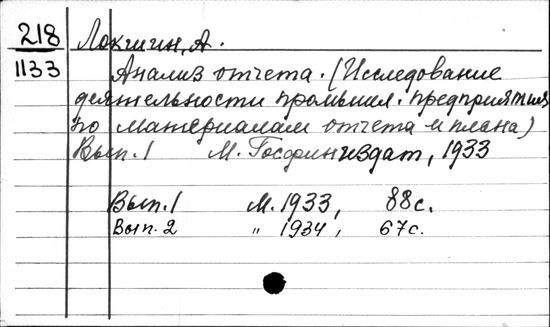 218 Локшин, А.
1133 Анализ отчета. (Исследование
деятельности промышл. предприятия
по материалам отчета и плана)
Вып. 1 М. Госфиниздат, 1933
Вып. 1 М. 1933, 88 с.
Вып. 2 " 1934, 67 с.